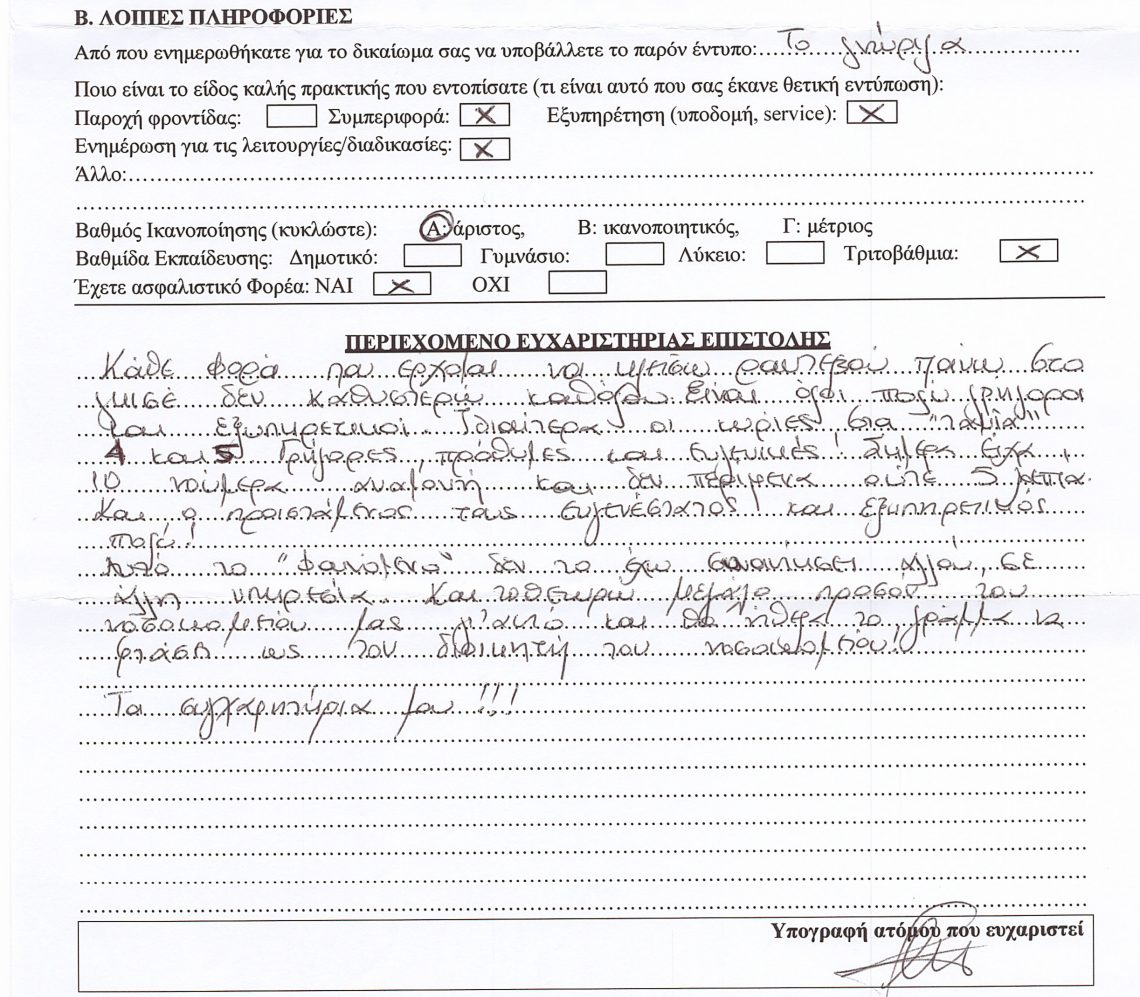 Β. ΛΟΙΠΕΣ ΠΛΗΡΟΦΟΡΙΕΣ
Από που ενημερωθήκατε για το δικαίωμα σας να υποβάλλετε το παρόν έντυπο: Το γνώριζα
Ποιο είναι το είδος καλής πρακτικής που εντοπίσατε (τι είναι αυτό που σας έκανε θετική εντύπωση):
Παροχή φροντίδας: Συμπεριφορά: X Εξυπηρέτηση (υποδομή, service): X
Ενημέρωση για τις λειτουργίες/διαδικασίες: X
Άλλο:
Βαθμός Ικανοποίησης (κυκλώστε): Α: άριστος, Β: ικανοποιητικός, Γ: μέτριος
Βαθμίδα Εκπαίδευσης: Δημοτικό: Γυμνάσιο: Λύκειο: Τριτοβάθμια: X
Έχετε ασφαλιστικό Φορέα: ΝΑΙ X ΟΧΙ
ΠΕΡΙΕΧΟΜΕΝΟ ΕΥΧΑΡΙΣΤΗΡΙΑΣ ΕΠΙΣΤΟΛΗΣ
Κάθε φορά που έρχομαι να κλείσω ραντεβού πάνω στο
γκισέ δεν καθυστερώ καθόλου. Είναι όλοι πολύ γρήγοροι
και εξυπηρετικοί. Ιδιαίτερα οι κυρίες στα "ταμία"
4 και 5 Γρήγορες, πρόθυμες και ευγενικές! Σήμερα είχα
10 νούμερα αναμονή και δεν περίμενα ούτε 5 λεπτά.
Και ο προιστάμενος τους ευγενέστατος! και εξυπηρετικός
πολύ!
Αυτό το "φαινόμενο" δεν το έχω συναντήσει αλλού, σε
άλλη υπηρεσία. Και το θεωρώ μεγάλο προσόν του
νοσοκομείου μας γι'αυτό και θα ήθελα το γράμμα να
φτάσει ως τον διοικητή του νοσοκομείου!
Τα συγχαρητήρια μου!!!
Υπογραφή ατόμου που ευχαριστεί